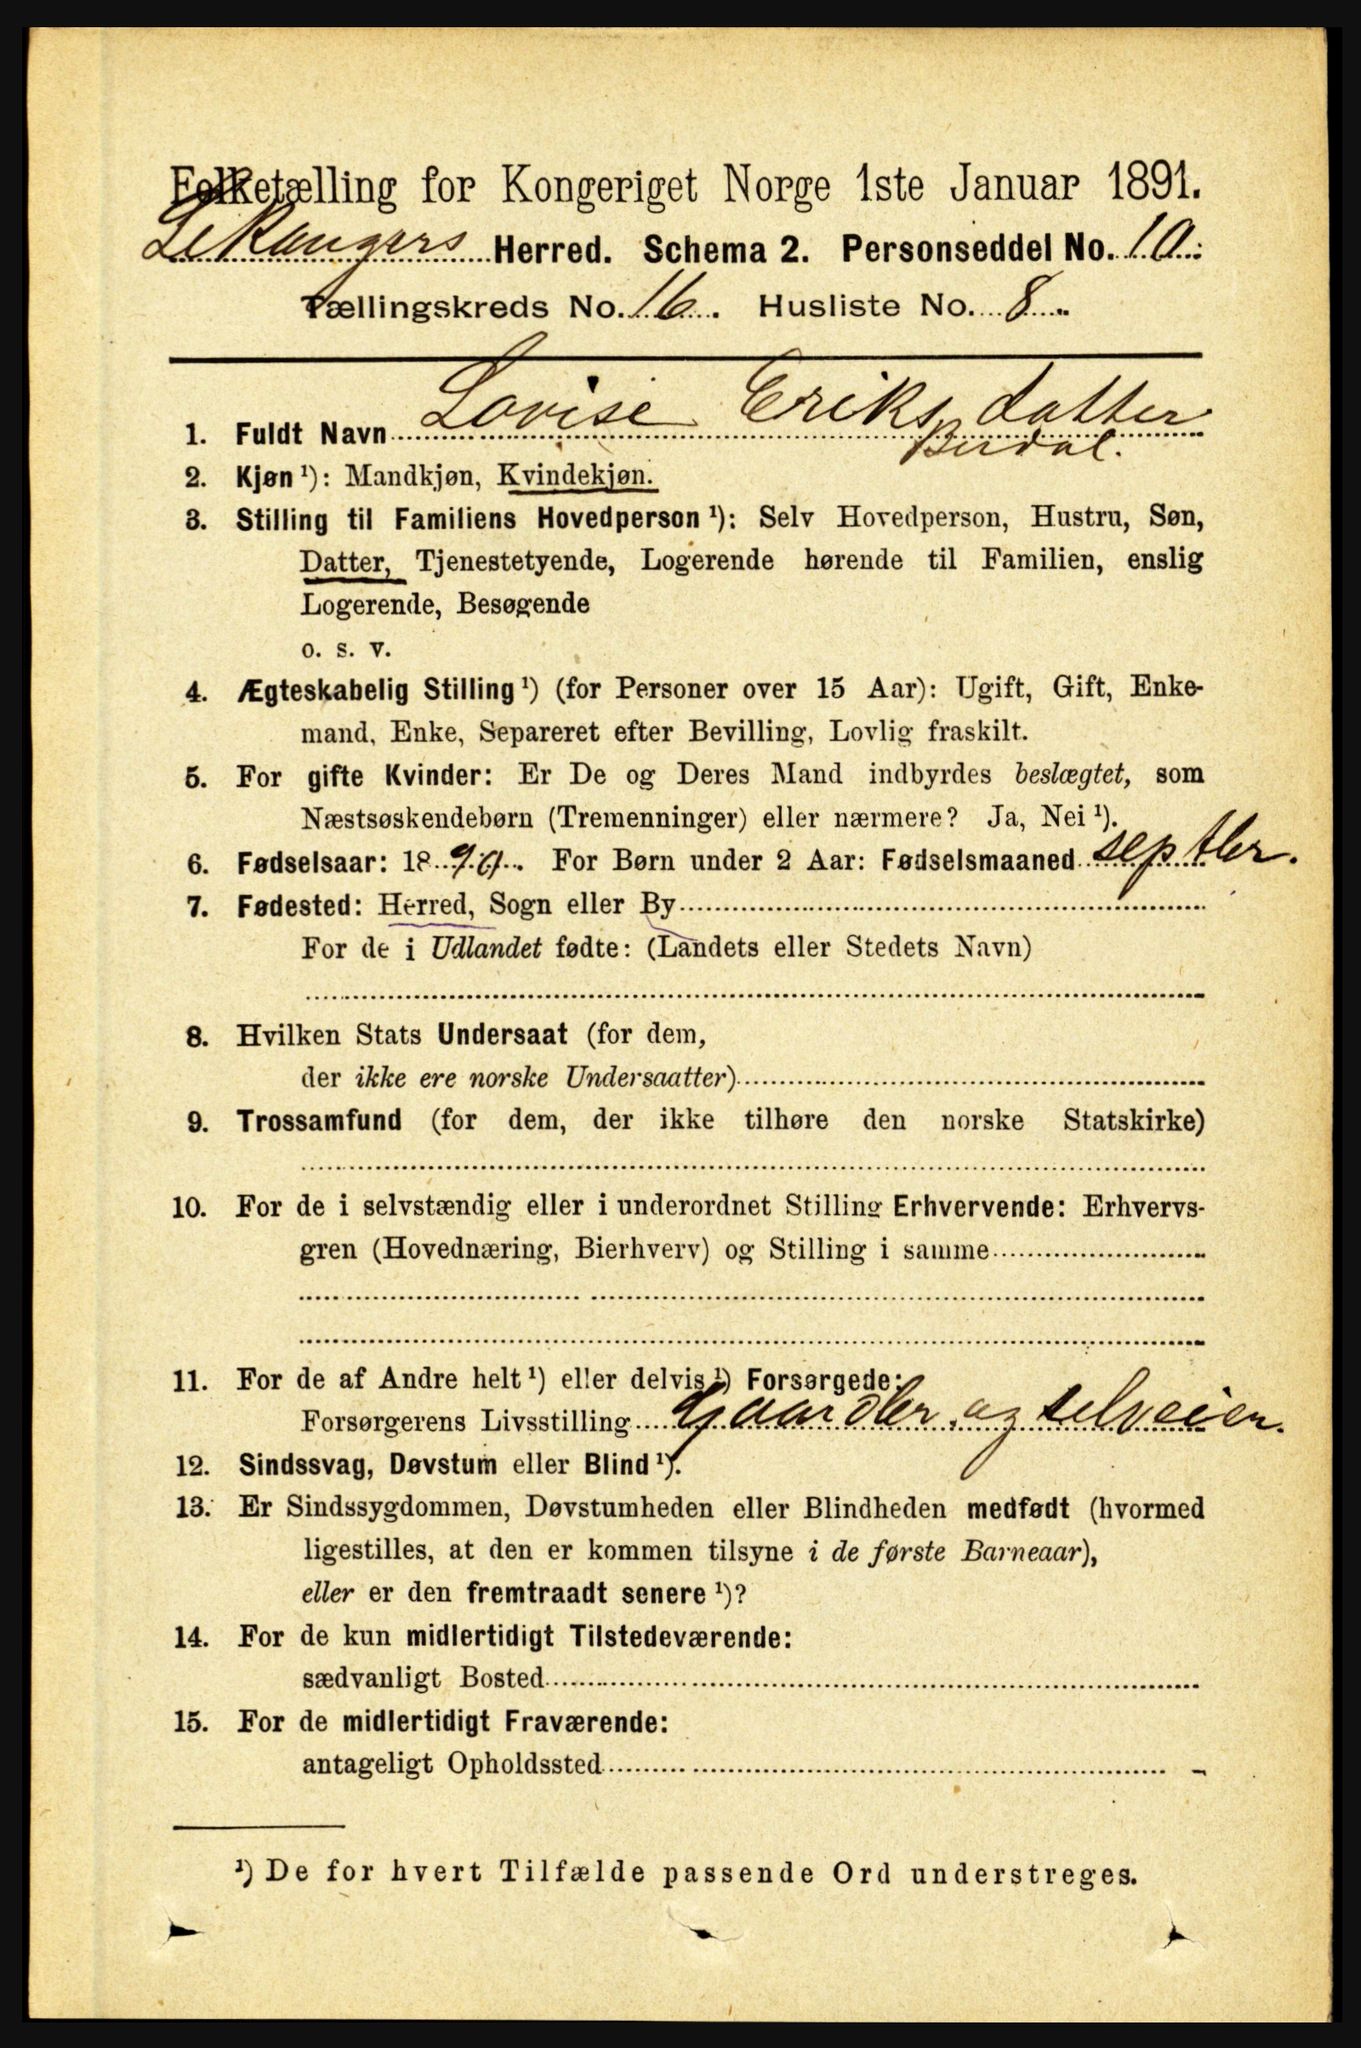 Folketælling for Kongeriget Norge 1ste Januar 1891.
Lekangers Herred. Schema 2. Personseddel No. 10.
Tællingskreds No. 16. Husliste No. 8.
1. Fuldt Navn Lovise Eriksdatter
Berdal.
2. Kjøn ¹): Mandkjøn, Kvindekjøn.
3. Stilling til Familiens Hovedperson ¹): Selv Hovedperson, Hustru, Søn,
Datter, Tjenestetyende, Logerende hørende til Familien, enslig
Logerende, Besøgende
o. s. v.
4. Ægteskabelig Stilling ¹) (for Personer over 15 Aar): Ugift, Gift, Enke-
mand, Enke, Separeret efter Bevilling, Lovlig fraskilt.
5. For gifte Kvinder: Er De og Deres Mand indbyrdes beslægtet, som
Næstsøskendebørn (Tremenninger) eller nærmere? Ja, Nei ¹).
6. Fødselsaar: 1890. For Børn under 2 Aar: Fødselsmaaned septbr.
7. Fødested: Herred, Sogn eller By
For de i Udlandet fødte: (Landets eller Stedets Navn)
8. Hvilken Stats Undersaat (for dem,
der ikke ere norske Undersaatter)
9. Trossamfund (for dem, der ikke tilhøre den norske Statskirke)
10. For de i selvstændig eller i underordnet Stilling Erhvervende: Erhvervs-
gren (Hovednæring, Bierhverv) og Stilling i samme
11. For de af Andre helt ¹) eller delvis ¹) Forsørgede:
Forsørgerens Livsstilling Gaardbr. og selveier.
12. Sindssvag, Døvstum eller Blind ¹).
13. Er Sindssygdommen, Døvstumheden eller Blindheden medfødt (hvormed
ligestilles, at den er kommen tilsyne i de første Barneaar),
eller er den fremtraadt senere ¹)?
14. For de kun midlertidigt Tilstedeværende:
sædvanligt Bosted
15. For de midlertidigt Fraværende:
antageligt Opholdssted
¹) De for hvert Tilfælde passende Ord understreges.